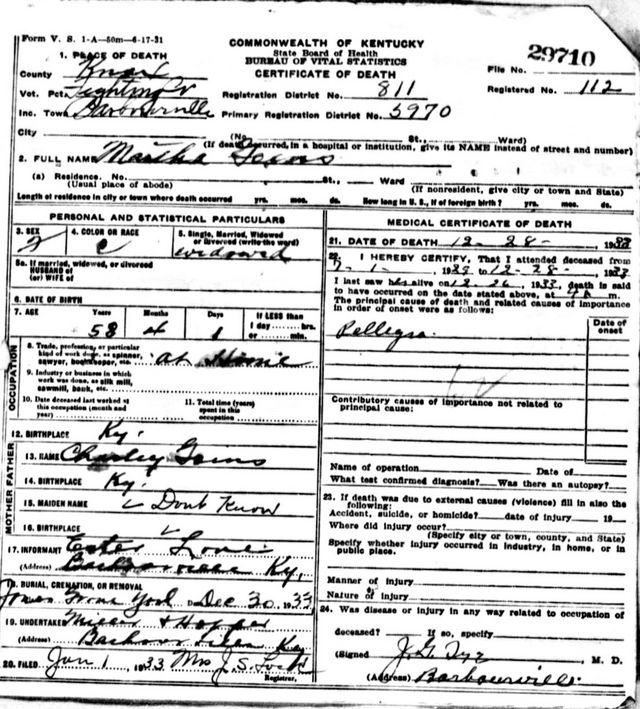 Form V. S. 1-A—50m—6-17-31
COMMONWEALTH OF KENTUCKY
State Board of Health
BUREAU OF VITAL STATISTICS
CERTIFICATE OF DEATH
29710
File No.
Registered No. 112
1. PLACE OF DEATH
County Knox
Vot. Pct.
Inc. Town Barbourville
Registration District No. 811
Primary Registration District No. 5970
City (No. St., Ward)
(If death occurred, in a hospital or institution, give its NAME instead of street and number)
2. FULL NAME Martha Goins
(a) Residence. No. St., Ward
(Usual place of abode) (If nonresident, give city or town and State)
Length of residence in city or town where death occurred yrs. mos. ds. How long in U. S., if of foreign birth? yrs. mos. ds.
PERSONAL AND STATISTICAL PARTICULARS
3. SEX 4. COLOR OR RACE 5. Single, Married, Widowed
or Divorced (write the word)
C widowed
5a. If married, widowed, or divorced
HUSBAND of
(or) WIFE of
6. DATE OF BIRTH
7. AGE Years Months Days If LESS than
1 day hrs.
or min.
58 4 1
OCCUPATION
8. Trade, profession, or particular
kind of work done, as spinner,
sawyer, bookkeeper, etc. at Home
9. Industry or business in which
work was done, as silk mill,
sawmill, bank, etc.
10. Date deceased last worked at
this occupation (month and
year)
11. Total time (years)
spent in this
occupation
12. BIRTHPLACE Ky.
FATHER
13. NAME Charley Goins
14. BIRTHPLACE Ky.
MOTHER
15. MAIDEN NAME Dont Know
16. BIRTHPLACE
17. INFORMANT
(Address) Barbourville Ky.
18. BURIAL, CREMATION, OR REMOVAL
Goins Yard Date Dec 30 1933
19. UNDERTAKER Miller & Hopper
(Address) Barbourville Ky
20. FILED Jan 1 1933 Mrs J. S.
Registrar.
MEDICAL CERTIFICATE OF DEATH
21. DATE OF DEATH 12-28- 1933
22. I HEREBY CERTIFY, That I attended deceased from
1933 to 12-28- 1933
I last saw her alive on 12-26, 1933, death is said
to have occurred on the date stated above, at m.
The principal cause of death and related causes of importance
in order of onset were as follows:
Date of
onset
Pellegra
Contributory causes of importance not related to
principal cause:
Name of operation Date of
What test confirmed diagnosis? Was there an autopsy?
23. If death was due to external causes (violence) fill in also the
following:
Accident, suicide, or homicide? date of injury 19
Where did injury occur?
(Specify city or town, county, and State)
Specify whether injury occurred in industry, in home, or in
public place.
Manner of injury
Nature of injury
24. Was disease or injury in any way related to occupation of
deceased? If so, specify
(Signed J. G. Dye, M. D.
(Address) Barbourville